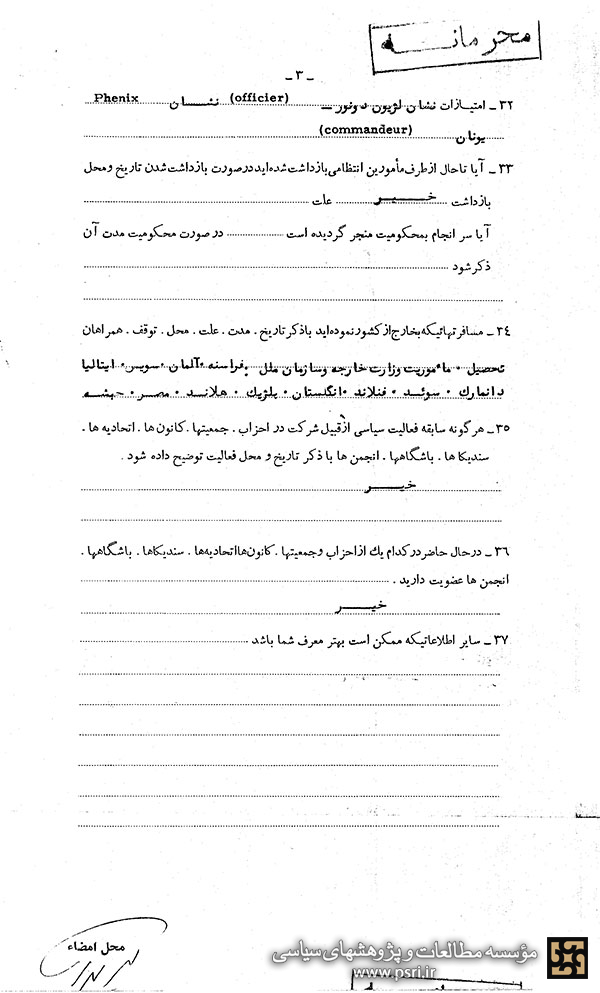 محرمانه
ـ ۳ ـ
۳۲ ـ امتیازات نشان لژیون دونور ــ (officier) نشان Phenix
یونان (commandeur)
۳۳ ـ آیا تاحال ازطرف مأمورین انتظامی بازداشت شده‌اید درصورت بازداشت شدن تاریخ ومحل
بازداشت خیر علت
آیا سر انجام بمحکومیت منجر گردیده است درصورت محکومیت مدت آن
ذکر شود
۳۴ ـ مسافرتهائیکه بخارج ازکشور نموده‌اید باذکر تاریخ . مدت . علت . محل . توقف . همراهان
تحصیل ۰ مأموریت وزارت خارجه وسازمان ملل بفرانسه ۰ آلمان ۰ سویس ۰ ایتالیا
دانمارک ۰ سوئد ۰ فنلاند ۰ انگلستان ۰ بلژیک ۰ هلاند ۰ مصر ۰ حبشه
۳۵ ـ هرگونه سابقه فعالیت سیاسی ازقبیل شرکت در احزاب . جمعیتها . کانون ها . اتحادیه ها .
سندیکا ها . باشگاهها . انجمن ها با ذکر تاریخ و محل فعالیت توضیح داده شود .
خیر
۳۶ ـ درحال حاضر درکدام یک ازاحزاب وجمعیتها . کانون‌ها اتحادیه‌ها . سندیکاها . باشگاهها .
انجمن ها عضویت دارید .
خیر
۳۷ ـ سایر اطلاعاتیکه ممکن است بهتر معرف شما باشد
محل امضاء
مؤسسه مطالعات و پژوهشهای سیاسی
www.psri.ir